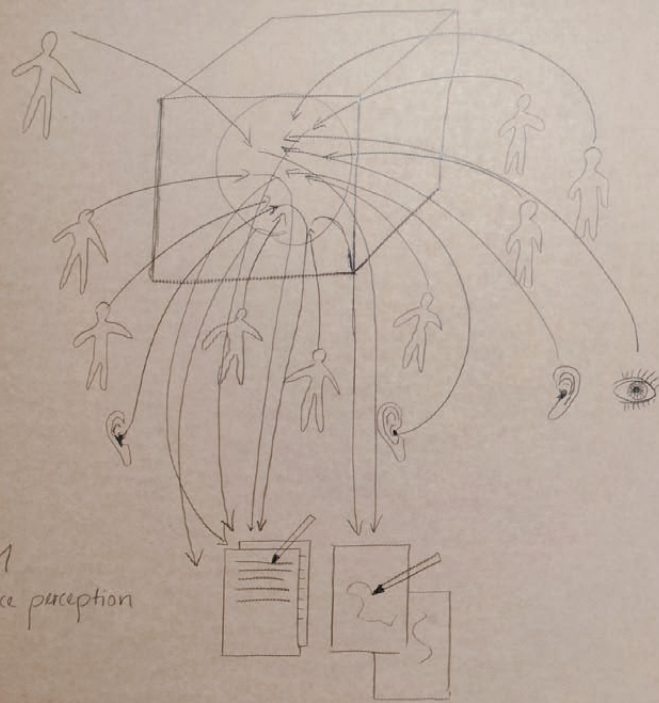 1
perception